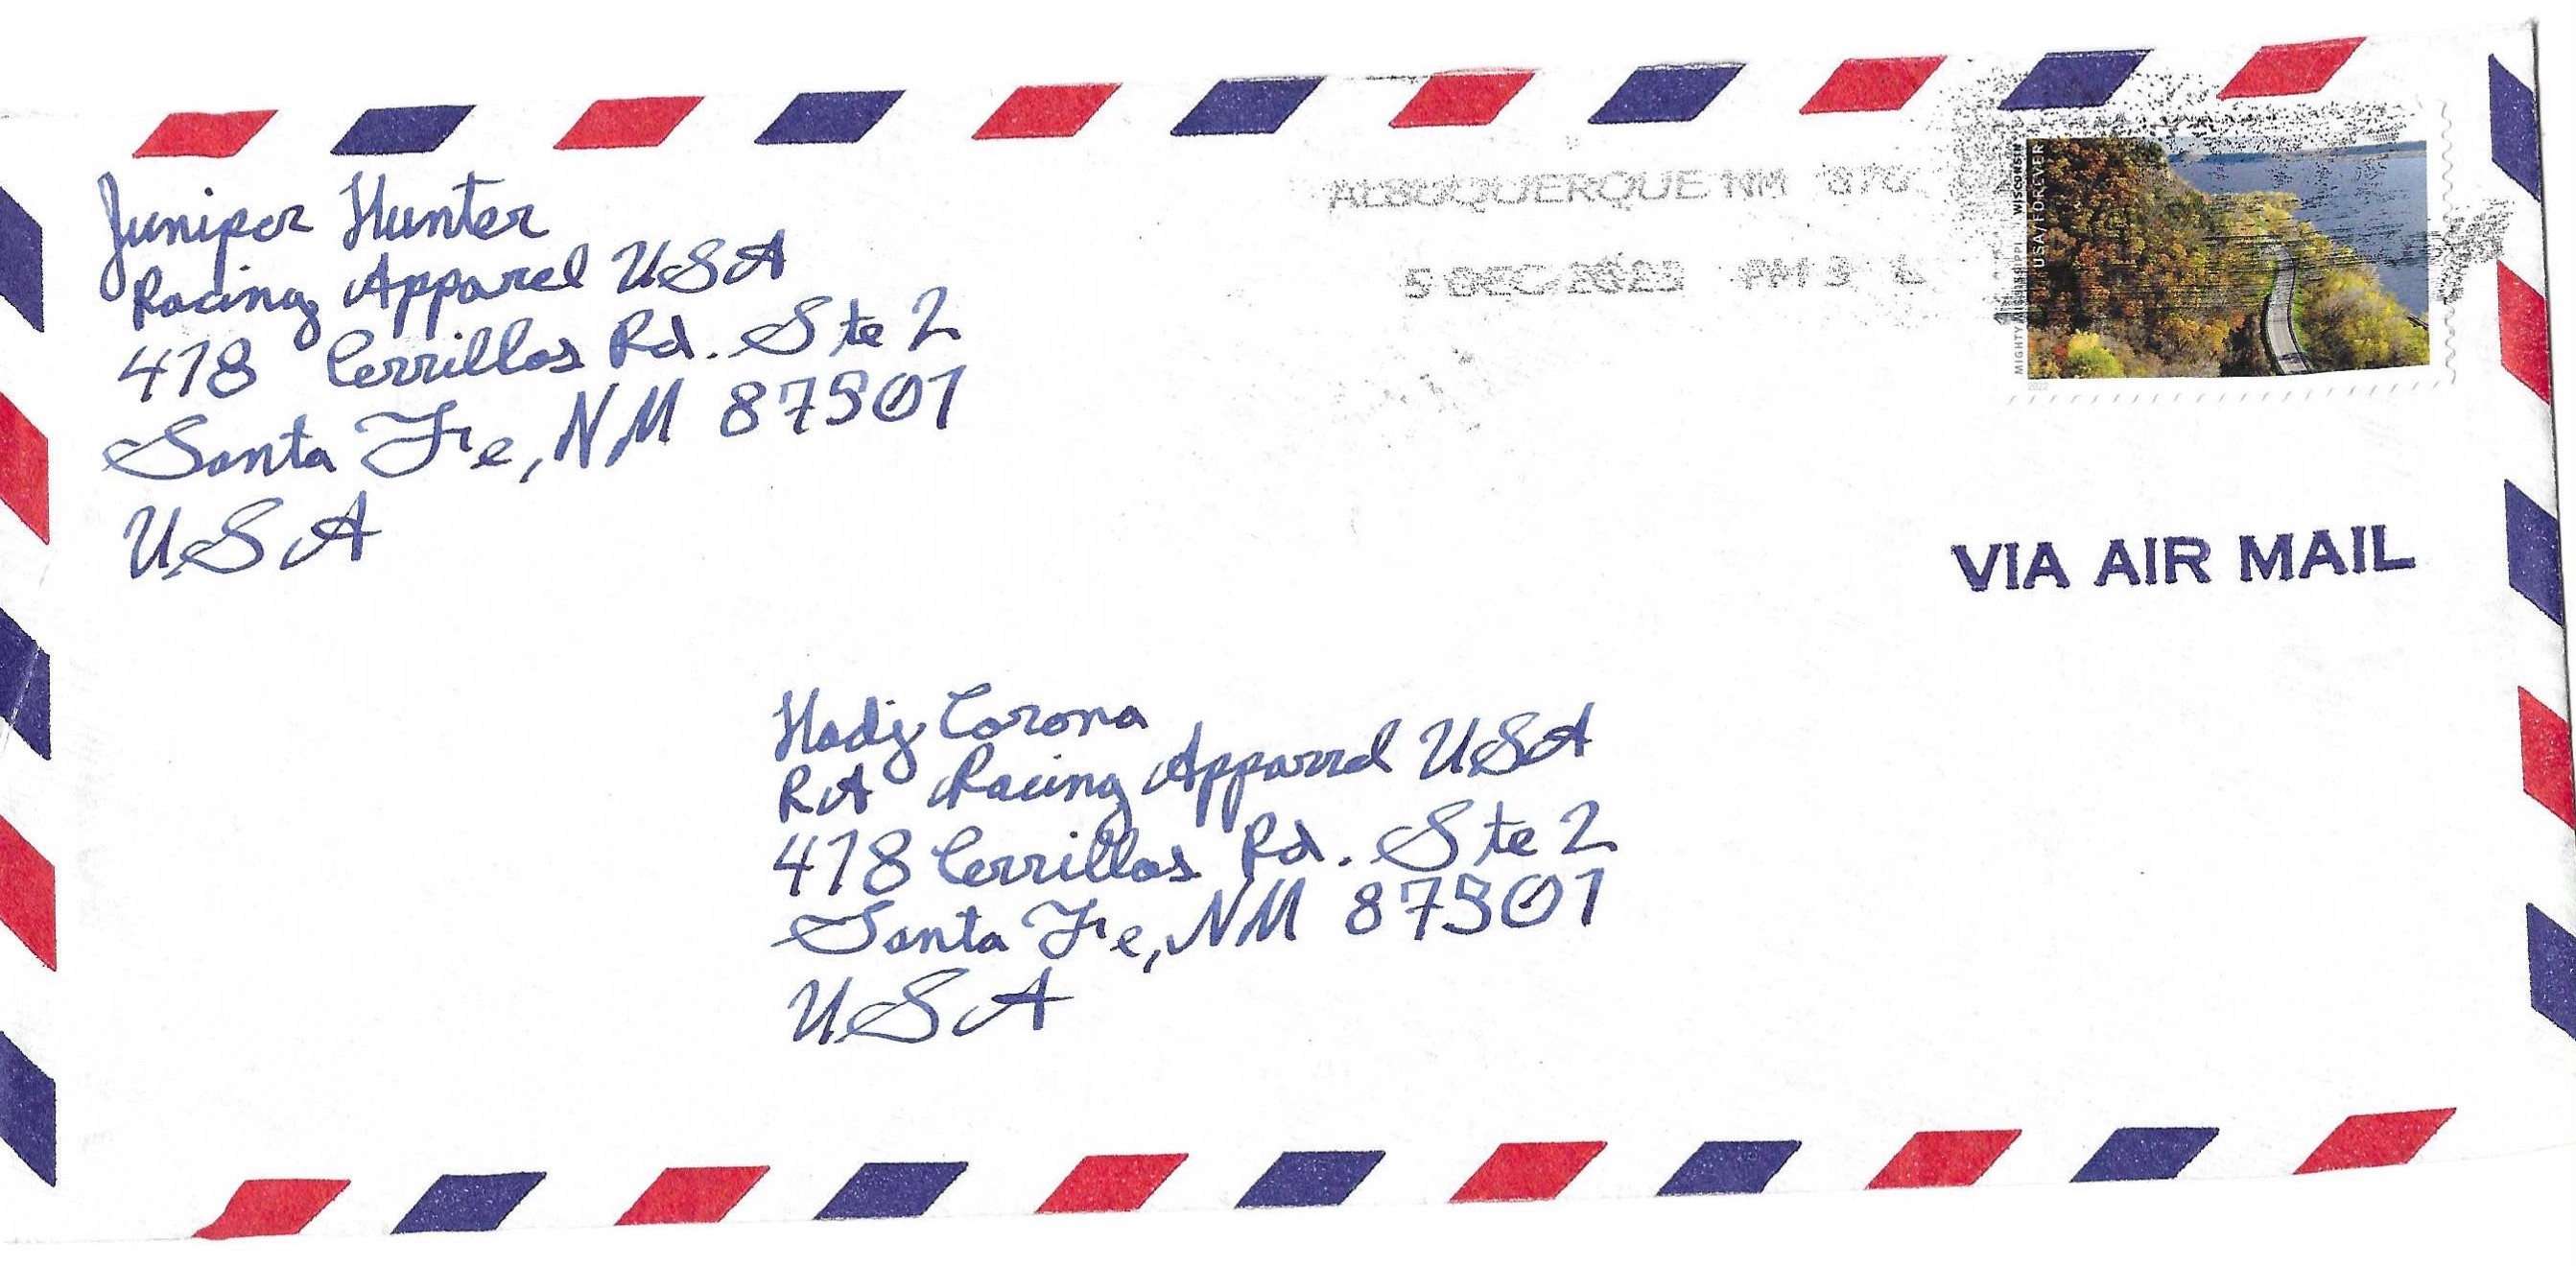 Juniper Hunter
Racing Apparel USA
418 Cerrillos Rd. Ste 2
Santa Fe, NM 87501
USA
ALBUQUERQUE NM 870
5 DEC 2023 PM 3 L
MIGHTY MISSISSIPPI WISCONSIN
USA/FOREVER
2022
VIA AIR MAIL
Hadij Corona
RA Racing Apparel USA
418 Cerrillos Rd. Ste 2
Santa Fe, NM 87501
USA